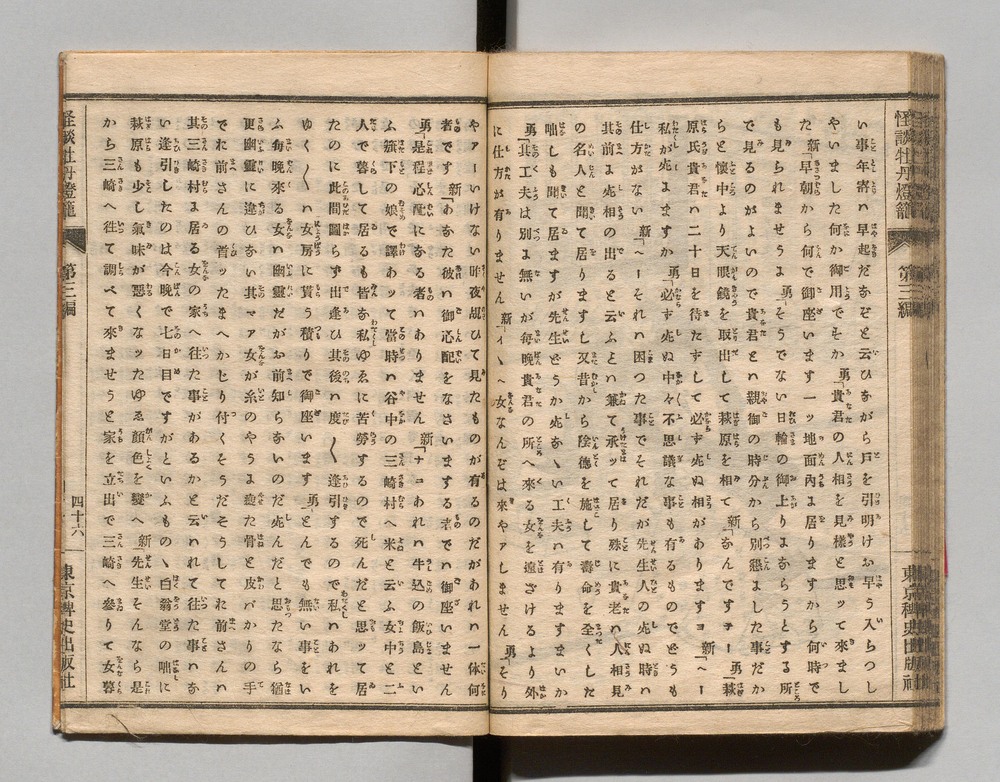 怪談牡丹燈籠 第三編 東京稗史出版社
い事年寄ハ早起だなぞと云ひながら戸を引明けお早う入らつし
やいました何か御用でそか 勇「貴君の人相を見樣と思ッて來まし
た 新「早朝から何で御座います一ッ地面內よ居りますから何時で
も見られませうよ 勇「そうでない日輪の御上りよならうとする所
で見るのがよいので貴君とハ親御の時分から別懇よした事だか
らと懷中より天眼鏡を取出して萩原を相て 新「なんですナ 勇「萩
原氏貴君ハ二十日を待たずして必ず死ぬ相がありますヨ 新「へー
私が死よますか 勇「必ず死ぬ中々不思議な事も有るものでどうも
仕方がない 新「へーそれハ困つた事でそれだが先生人の死ぬ時ハ
其前よ死相の出ると云ふことハ兼て承ハッて居り殊に貴老ハ人相見
の名人と聞て居りますし又昔から陰德を施して壽命を全くした
咄しも聞て居ますが先生どうか死なゝい工夫ハ有りますまいか
勇「其工夫は別よ無いが每晚貴君の所へ來る女を遠ざけるより外
に仕方が有りません 新「イヽヘ女なんぞは來ヤアしません 勇「そり
ヤアいけない昨夜覘ひて見たものが有るのだがあれハ一体何
者です 新「あなた彼ハ御心配をなさいまする者でハ御座いません
勇「是程心配になる者ハありません 新「ナニあれハ牛込の飯島とい
ふ籏下の娘で譯あッて當時ハ谷中の三崎村へ米と云ふ女中と二
人で暮して居るも皆な私ゆゑに苦勞するので死んだと思ッて居
たのに此間圖らず出逢ひ其後ハ度〱逢引するので私ハあれを
ゆく〱ハ女房に貰う積りで御座います 勇「とんでも無い事をい
ふ每晚來る女ハ幽靈だがお前知らないのだ死んだと思たなら猶
更幽靈に違ひないのマア女が糸のやうよ瘦た骨と皮バかりの手
でお前さんの首ッたまへかじり付くそうだそうしてお前さんハ
其三崎村よ居る女の家へ往た事があるかと云ハれて往た事ハな
い逢引したのは今晚で七日目ですがといふものゝ白翁堂の咄に
萩原も少し氣味が惡くなッたゆゑ顏色を變へ 新「先生そんなら是
から三崎へ往て調べて來ませうと家を立出で三崎へ參りて女暮
怪談牡丹燈籠 第三編 四十六 東京稗史出版社